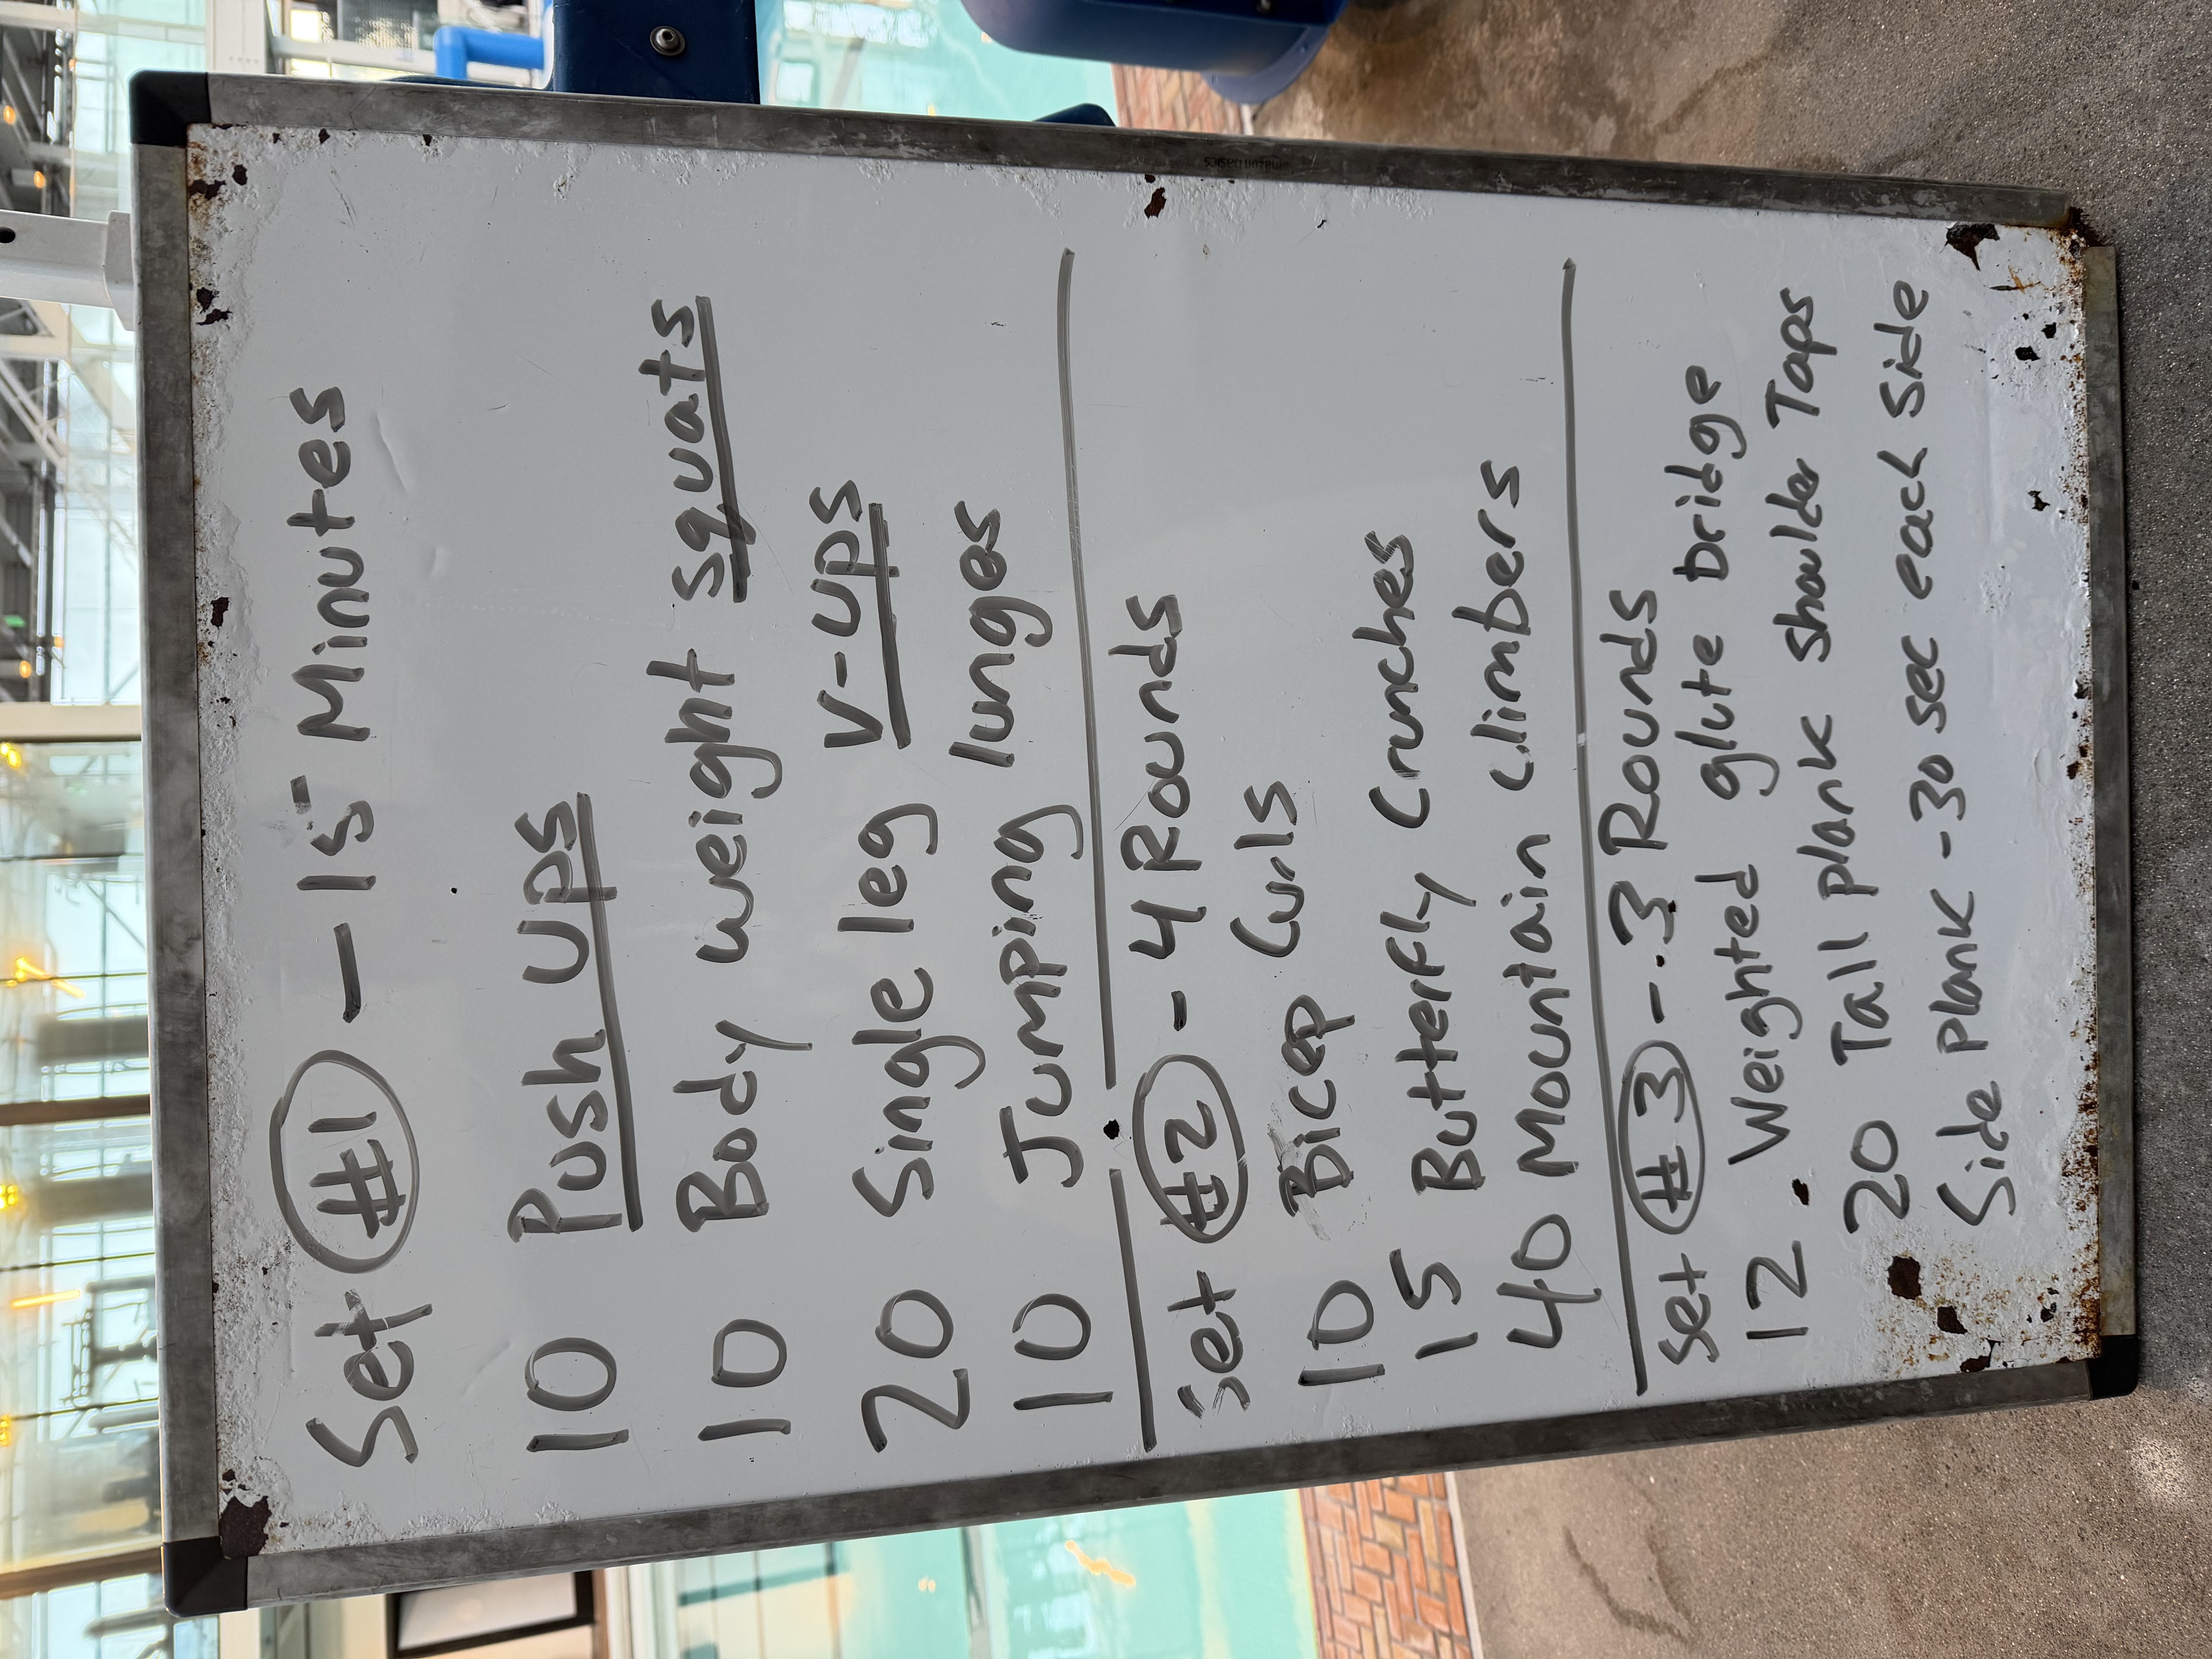 Set #1 - 15 Minutes
10 Push Ups
10 Body weight squats
20 Single leg V-ups
10 Jumping lunges
Set #2 - 4 Rounds
10 Bicep Curls
15 Butterfly Crunches
40 Mountain Climbers
Set #3 - 3 Rounds
12 Weighted glute bridge
20 Tall plank shoulder Taps
Side plank - 30 sec each side
amazon basics